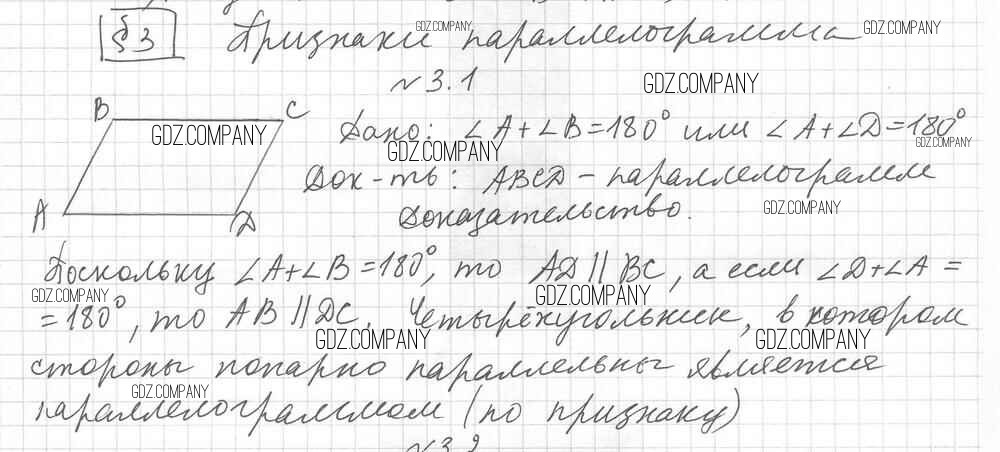 §3 Признаки параллелограмма
№3.1
B C
Дано: ∠A+∠B=180° или ∠A+∠D=180°
Док-ть: ABCD – параллелограмм
A D
Доказательство.
Поскольку ∠A+∠B=180°, то AD || BC, а если ∠D+∠A =
=180°, то AB || DC. Четырёхугольник, в котором
стороны попарно параллельны является
параллелограммом (по признаку)
GDZ.COMPANY
GDZ.COMPANY
GDZ.COMPANY
GDZ.COMPANY
GDZ.COMPANY
GDZ.COMPANY
GDZ.COMPANY
GDZ.COMPANY
GDZ.COMPANY
GDZ.COMPANY
GDZ.COMPANY
GDZ.COMPANY